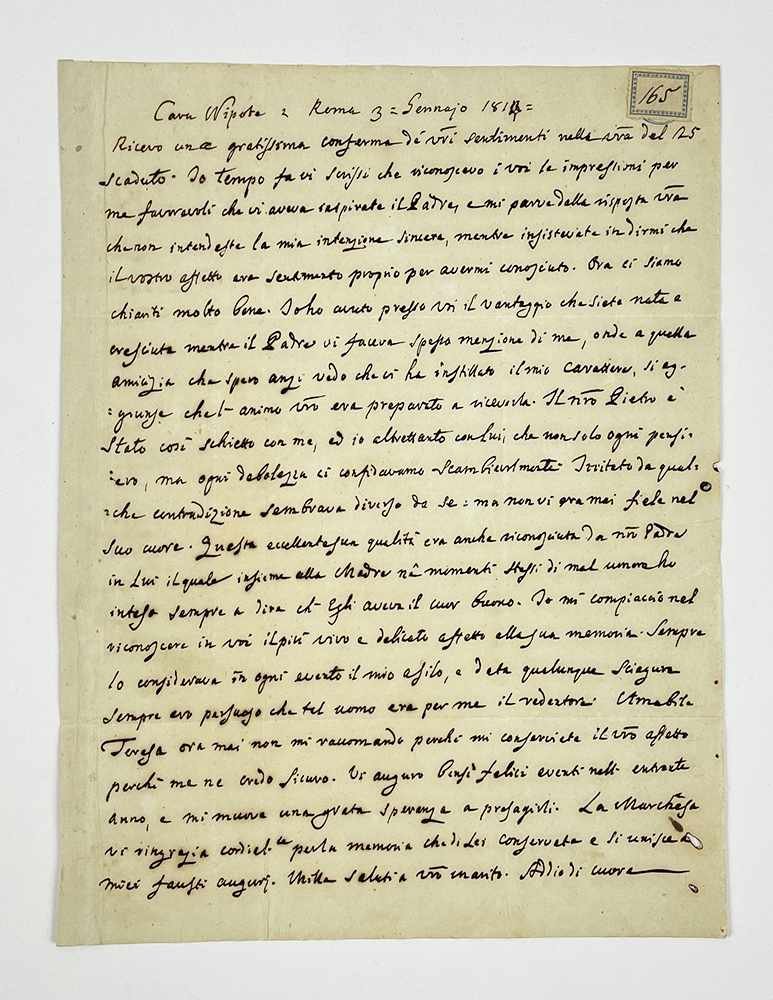 165
Cara Nipote = Roma 3 = Gennajo 181 =
Ricevo una gratissima conferma de' vri sentimenti nella vra del 25
scaduto. Io tempo fa vi scrissi che riconoscevo i voi le impressioni per
me favorevoli che vi aveva inspirate il Padre, e mi parve dalla risposta vra
che non intendeste la mia intenzione sincera, mentre insistevate in dirmi che
il vostro affetto era sentimento proprio per avermi conosciuto. Ora ci siamo
chiariti molto bene. Io ho avuto presso voi il vantaggio che siete nata e
cresciuta mentre il Padre vi faceva spesso menzione di me, onde a quella
amicizia che spero anzi vedo che vi ha instillato il mio carattere, si ag-
=giunse che l'animo vro era preparato a riceverla. Il nro Pietro è
stato così schietto con me, ed io altrettanto con lui, che non solo ogni pensi-
=ero, ma ogni debolezza ci confidavamo scambievolmente. Irritato da qual=
=che contradizione sembrava diverso da se = ma non vi era mai fiele nel
suo cuore. Questa eccellente sua qualità era anche riconosciuta da nro Padre
in Lui il quale insieme alla Madre ne' momenti stessi di mal umore ho
inteso sempre a dire ch'Egli aveva il cuor buono. Io mi compiaccio nel
riconoscere in voi il più vivo e delicato affetto alla sua memoria. Sempre
lo considerava in ogni evento il mio asilo, e data qualunque sciagura
sempre ero persuaso che tal uomo era per me il redentore. Amabile
Teresa ora mai non mi raccomando perchè mi conserviate il vro affetto
perchè me ne credo sicuro. Vi auguro bensì felici eventi nell' entrante
anno, e mi muove una grata speranza a presagirli. La Marchesa
vi ringrazia cordial.te per la memoria che di Lei conservate e si unisce a
miei fausti augurj. Mille saluti a vro marito. Addio di cuore